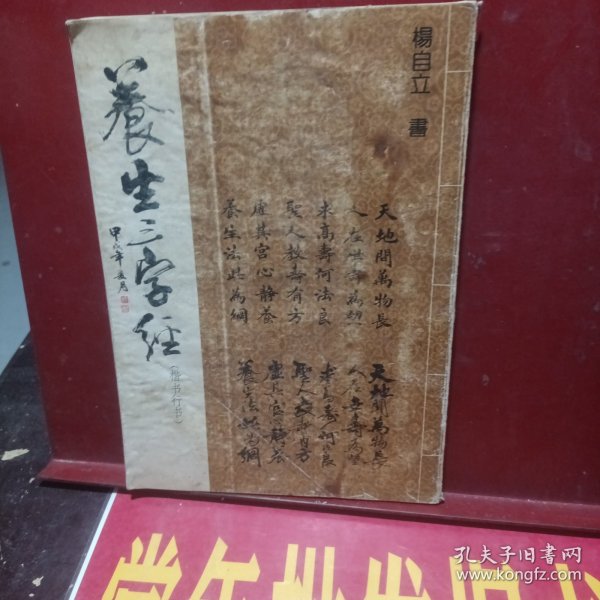 楊自立 書
養生三字經
(楷书行书)
甲戌年
天地間萬物長
人在世壽為塱
求高壽何法良
聖人教壽有方
虛其宮心靜養
養生法此為綱
天地間萬物長
求高壽何法良
聖人教壽有方
養生法此為綱
孔夫子旧书网
www.kongfz.com